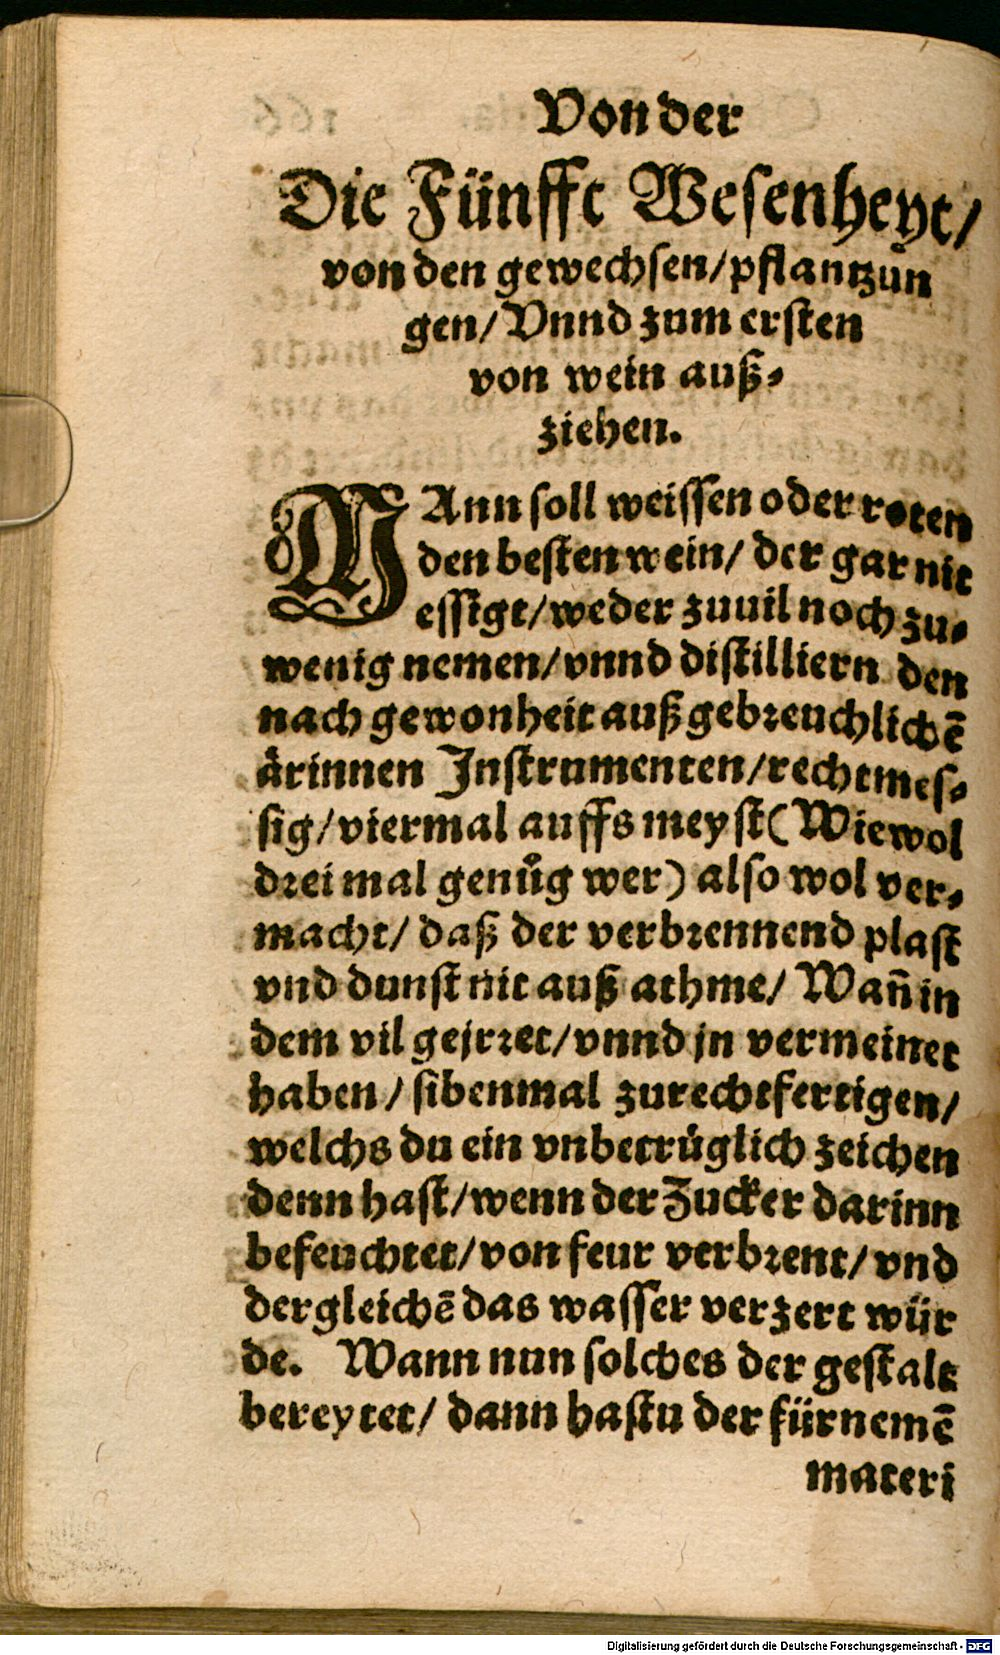 Von der
Die Fünfft Wesenheyt/
von den gewechsen/pflantzůn
gen/ Vnnd zum ersten
von wein auß⸗
ziehen.
MAnn soll weissen oder roten
den besten wein/ der gar nit
essigt/weder zuuil noch zu⸗
wenig nemen/vnnd distilliern den
nach gewonheit auß gebreuchlichē
ärinnen Instrumenten/rechtmes⸗
sig/viermal auffs meyst(Wiewol
drei mal genůg wer) also wol ver⸗
macht/ daß der verbrennend plast
vnd dunst nit auß athme/ Wañ in
dem vil gejrret/vnnd jn vermeinet
haben/ sibenmal zurechtfertigen/
welchs du ein vnbetrüglich zeichen
denn hast/wenn der Zucker darinn
befeuchtet/von feur verbrent/vnd
dergleichē das wasser verzert wür
de. Wann nun solches der gestalt
bereytet/ dann hastu der fürnemē
materi
Digitalisierung gefördert durch die Deutsche Forschungsgemeinschaft - DFG